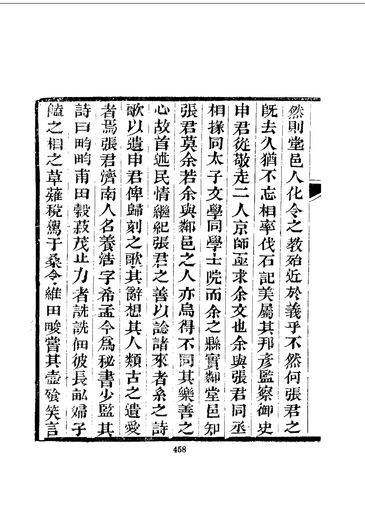 然則堂邑人化令之教殆近於義乎不然何張君之
旣去久猶不忘相率伐石記美屬其邦彥監察御史
申君從敬走二人京師亟求余文也余與張君同丞
相掾同太子文學同學士院而余之縣實鄰堂邑知
張君莫余若余與鄰邑之人亦烏得不同其樂善之
心故首述民情繼紀張君之善以諗諸來者系之詩
歌以遺申君俾歸刻之歌其辭想其人類古之遺愛
者焉張君濟南人名養浩字希孟今為秘書少監其
詩曰畇畇甫田穀菽茂止力者詵詵佃彼長畝婦子
饁之相之草薙稅駕于桑令維田畯嘗其壺飱笑言
458